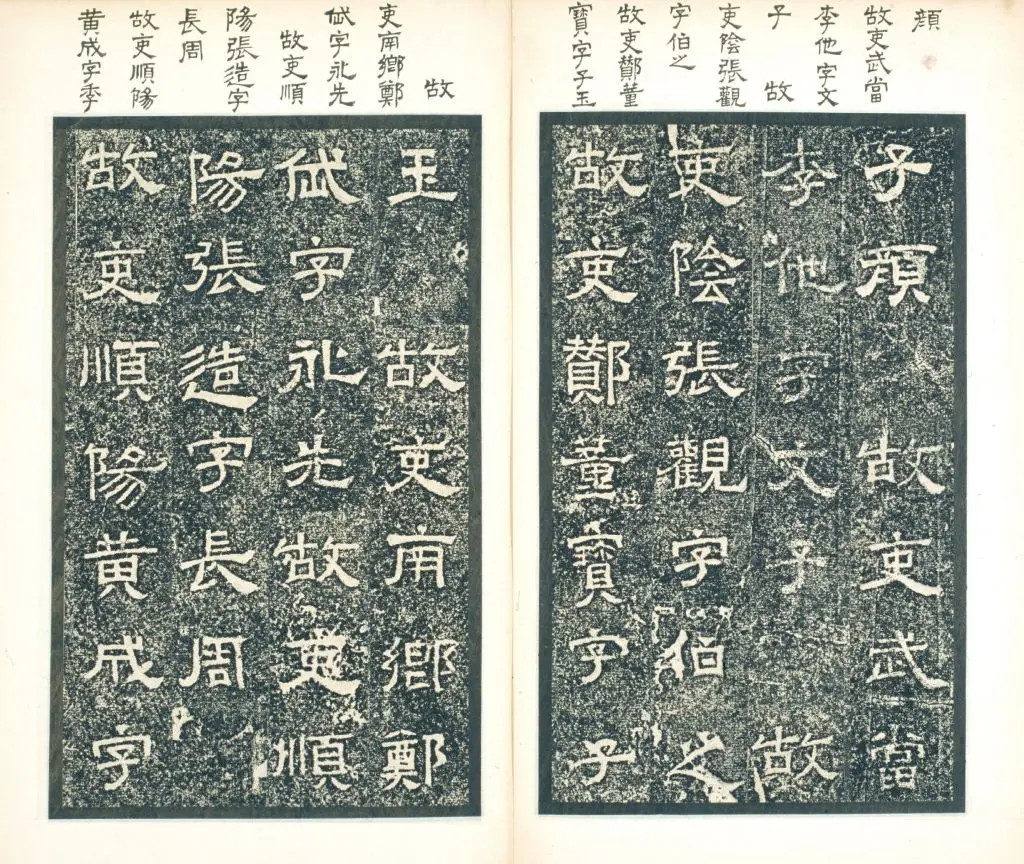 故吏武當
李他字文
子 故
吏陰張觀
字伯之
故吏酇董
寶字子玉
子
故吏武當
李他字文子 故
吏陰張觀字伯之
故吏酇董寶字子
故
吏南鄉鄭
字永先
故吏順
陽張造字
長周
故吏順陽
黃成字季
玉 故吏南鄉鄭
字永先 故吏順
陽張造字長周
故吏順陽黃成字